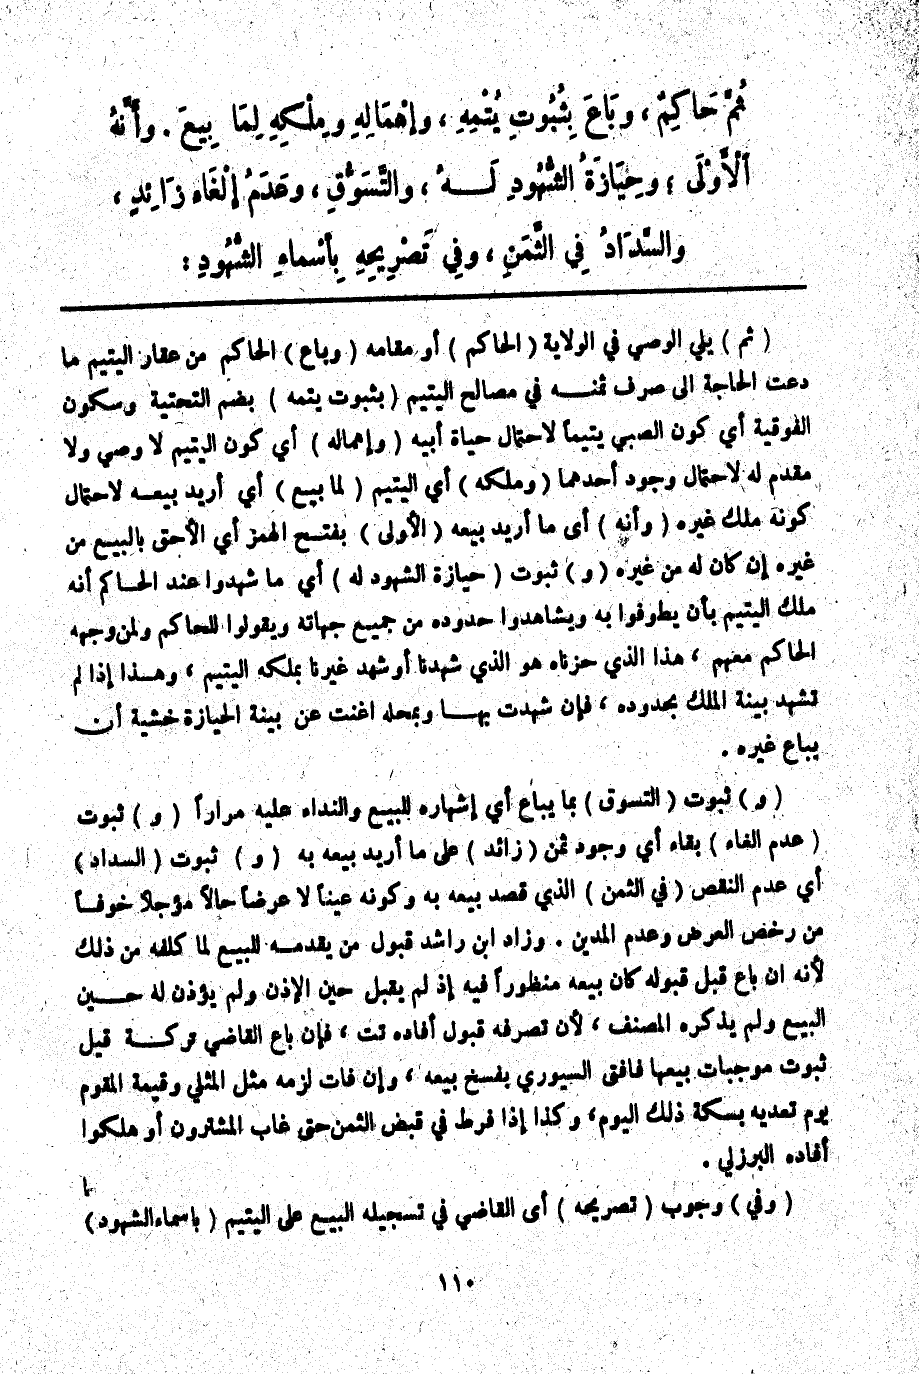 ثُمَّ حَاكِمٌ ، وبَاعَ بِثُبُوتِ يُتْمِهِ ، وإهْمَالِهِ ومِلْكِهِ لِمَا بِيعَ . وأَنَّهُ
اَلْأَوْلَى ؛ وحِيَازَةُ الشُّهُودِ لَـــهُ ، والتَّسَوُّقِ ، وعَدَمُ إلْغَاءِ زَائِدٍ ،
والسَّدَادُ فِي الثَّمَنِ ، وفِي تَصْرِيحِهِ بِأسْماءِ الشُّهُودِ :
( ثم ) يلي الوصي في الولاية ( الحاكم ) أو مقامه ( وباع ) الحاكم من عقار اليتيم ما
دعت الحاجة الى صرف ثمنـــه في مصالح اليتيم ( بثبوت يتمه ) بضم التحتية وسكون
الفوقية أي كون الصبي يتيماً لاحتمال حياة أبيه ( وإهماله ) أي كون اليتيم لا وصي ولا
مقدم له لاحتمال وجود أحدهما ( وملكه ) أي اليتيم ( لما بيع ) أي أريد بيعــه لاحتمال
كونه ملك غيره ( وأنه ) أى ما أريد بيعه ( الأولى ) بفتــح الهمز أي الأحق بالبيــع من
غيره إن كان له من غيره ( و ) ثبوت ( حيازة الشهود له ) أي ما شهدوا عند الحــاكم أنه
ملك اليتيم بأن يطوفوا به ويشاهدوا حدوده من جميــع جهاته ويقولوا للحاكم ولمن وجهه
الحاكم معهم ، هذا الذي حزناه هو الذي شهدنا أو شهد غيرنا بملكه اليتيم ، وهــذا إذا لم
تشهد بينة الملك بحدوده ، فإن شهدت بهـــا وبمحله اغنت عن بينة الحيازة خشية أن
يباع غيره .
( و ) ثبوت ( التسوق ) بما يباع أي إشهاره للبيع والنداء عليه مراراً ( و ) ثبوت
( عدم الغاء ) بقاء أي وجود ثمن ( زائد ) على ما أريد بيعه به ( و ) ثبوت ( السداد )
أي عدم النقص ( في الثمن ) الذي قصد بيعه به وكونه عيناً لا عرضاً حالاً مؤجلاً خوفــاً
من رخص العرض وعدم المدين . وزاد ابن راشد قبول من يقدمــه للبيــع لما كلفه من ذلك
لأنه ان باع قبل قبوله كان بيعه منظوراً فيه إذ لم يقبل حين الإذن ولم يؤذن له حـــين
البيــع ولم يذكره المصنف ، لأن تصرفه قبول أفاده تت ، فإن باع القاضي تركـــة قبل
ثبوت موجبات بيعها فافتى السيوري بفسخ بيعه ، وإن فات لزمه مثل المثلي وقيمة المقوم
يوم تعديه بسكة ذلك اليوم، وكذا إذا فرط في قبض الثمن حتى غاب المشترون أو هلكوا
أفاده البرزلي .
( وفي ) وجوب ( تصريحه ) أى القاضي في تسجيله البيــع على اليتيم ( باسماء الشهود )
١١٠